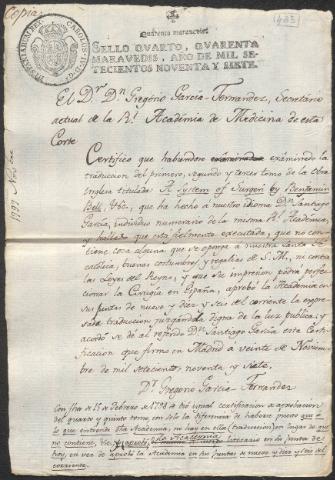 Copia
Quarenta maravedis
SELLO QVARTO, QVARENTA
MARAVEDIS, AÑO DE MIL SE-
TECIENTOS NOVENTA Y SIETE.
El Dr. Dn. Gregorio Garcia-Fernandez, Secretario
actual de la Rl. Academia de Medicina de esta
Corte
Certifico que habiendose examinado la
traduccion del primero, segundo y tercer tomo de la obra
inglesa titulada A System of Surgery by Benjamin
Bell &c. que ha hecho a nuestro idioma Dn. Santiago
Garcia, individuo numerario de la misma Rl. Academia,
y hallado que está fielmente executada, que no con-
tiene cosa alguna que se oponga a nuestra Santa Fe
catolica, buenas costumbres, y regalias de S.M., ni contra
las Leyes del Reyno, y que su impresion podrá perfec-
cionar la Cirugia en España, aprobó la Academia en
sus juntas de nueve y diez y seis del corriente la expre-
sada traduccion juzgandola digna de la luz publica, y
acordó se dé al referido Dn. Santiago Garcia esta Certi-
ficacion que firmo en Madrid a veinte de Noviem-
bre de mil setecientos noventa y siete.
Dr. Gregorio Garcia Fernandez
Con fha de 15 de Febrero de 1798 se dió igual certificacion a aprobacion
del quarto y quinto tomo con solo la diferencia de haberse puesto que a
lo que entiende la Academia, no hay en ella (traduccion) en lugar de que
no contiene, &c. y aprobó la Academia literario en su junta de
hoy, en vez de aprobó la Academia en sus juntas de nueve y diez y seis del
corriente.
1797 Nov.